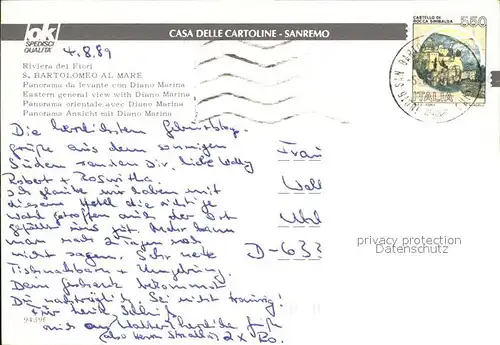 lok
SPEDISCI
QUALITÀ
CASA DELLE CARTOLINE - SANREMO
CASTELLO DI
ROCCA SINIBALDA
550
ITALIA
4.8.89
Riviera dei Fiori
S. BARTOLOMEO AL MARE
Panorama da levante con Diano Marina
Eastern general view with Diano Marina
Panorama orientale avec Diano Marina
Panorama Ansicht mit Diano Marina
Die herzlichsten Geburtstags-
grüße aus dem sonnigen
Süden senden Dir, liebe
Robert + Roswitha.
Ich glaube wir haben mit
diesem Hotel die richtige
Wahl getroffen auch der Ort
gefällt uns gut. Mehr kann
man nach 2 Tagen noch
nicht sagen. Sehr nette
Tischnachbarn + Umgebung.
Dein Geschenk bekommst
Du nachträglich. Sei nicht traurig!
Für heute
2 x Bo.
Frau
D-633
privacy protection
Datenschutz
94396